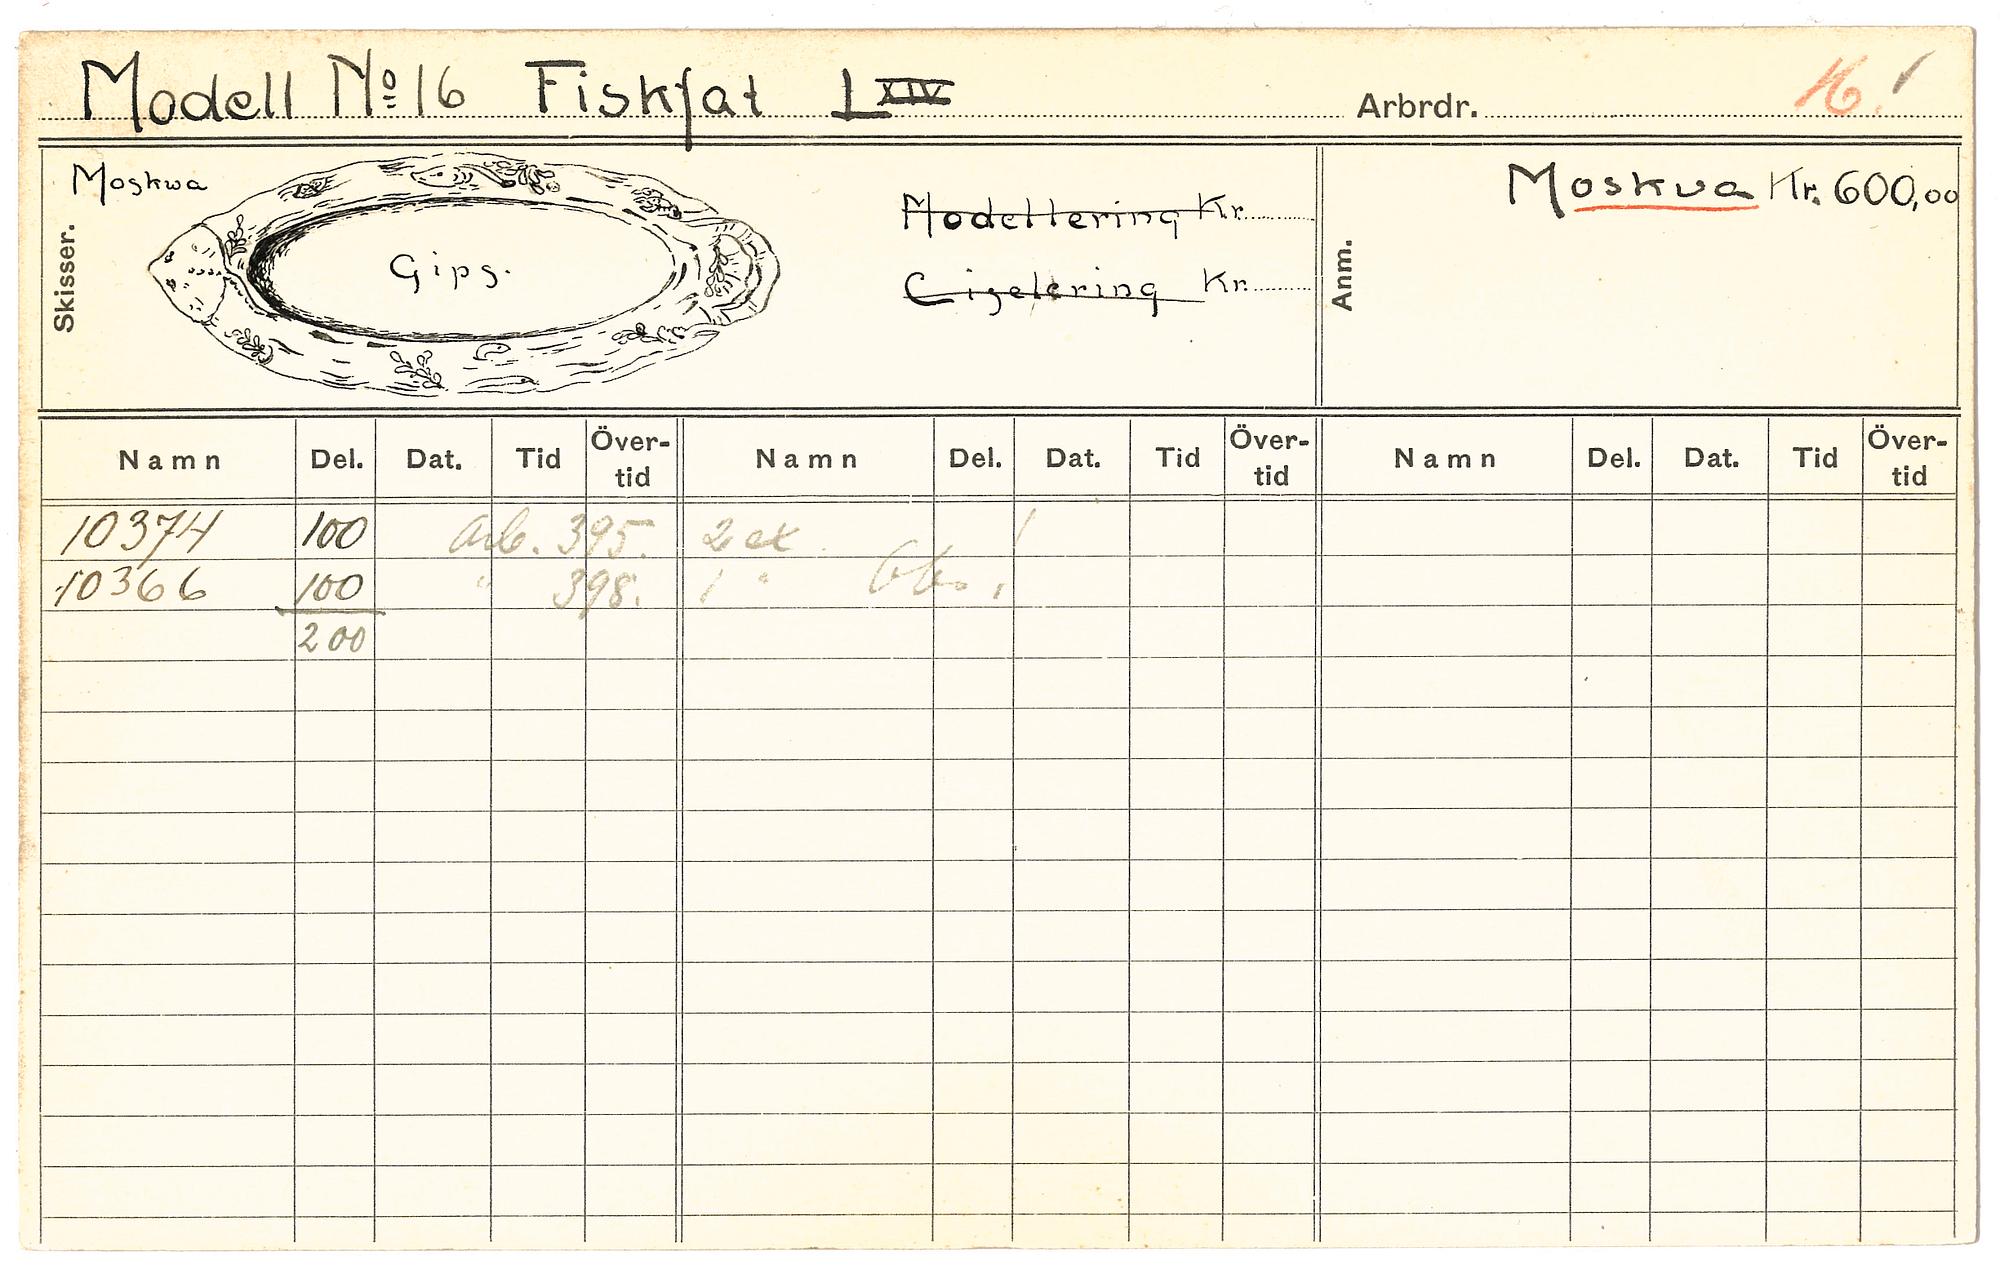 Modell No 16 Fiskfat L XIV
Arbrdr. 16.
Skisser.
Moskwa
Gips.
Modellering Kr.
Ciselering Kr.
Anm.
Moskva Kr. 600,00
Namn Del. Dat. Tid Över-tid Namn Del. Dat. Tid Över-tid Namn Del. Dat. Tid Över-tid
10374 100 arb. 395. 2 ex.
10366 100 " 398. 1 " Obs.!
200